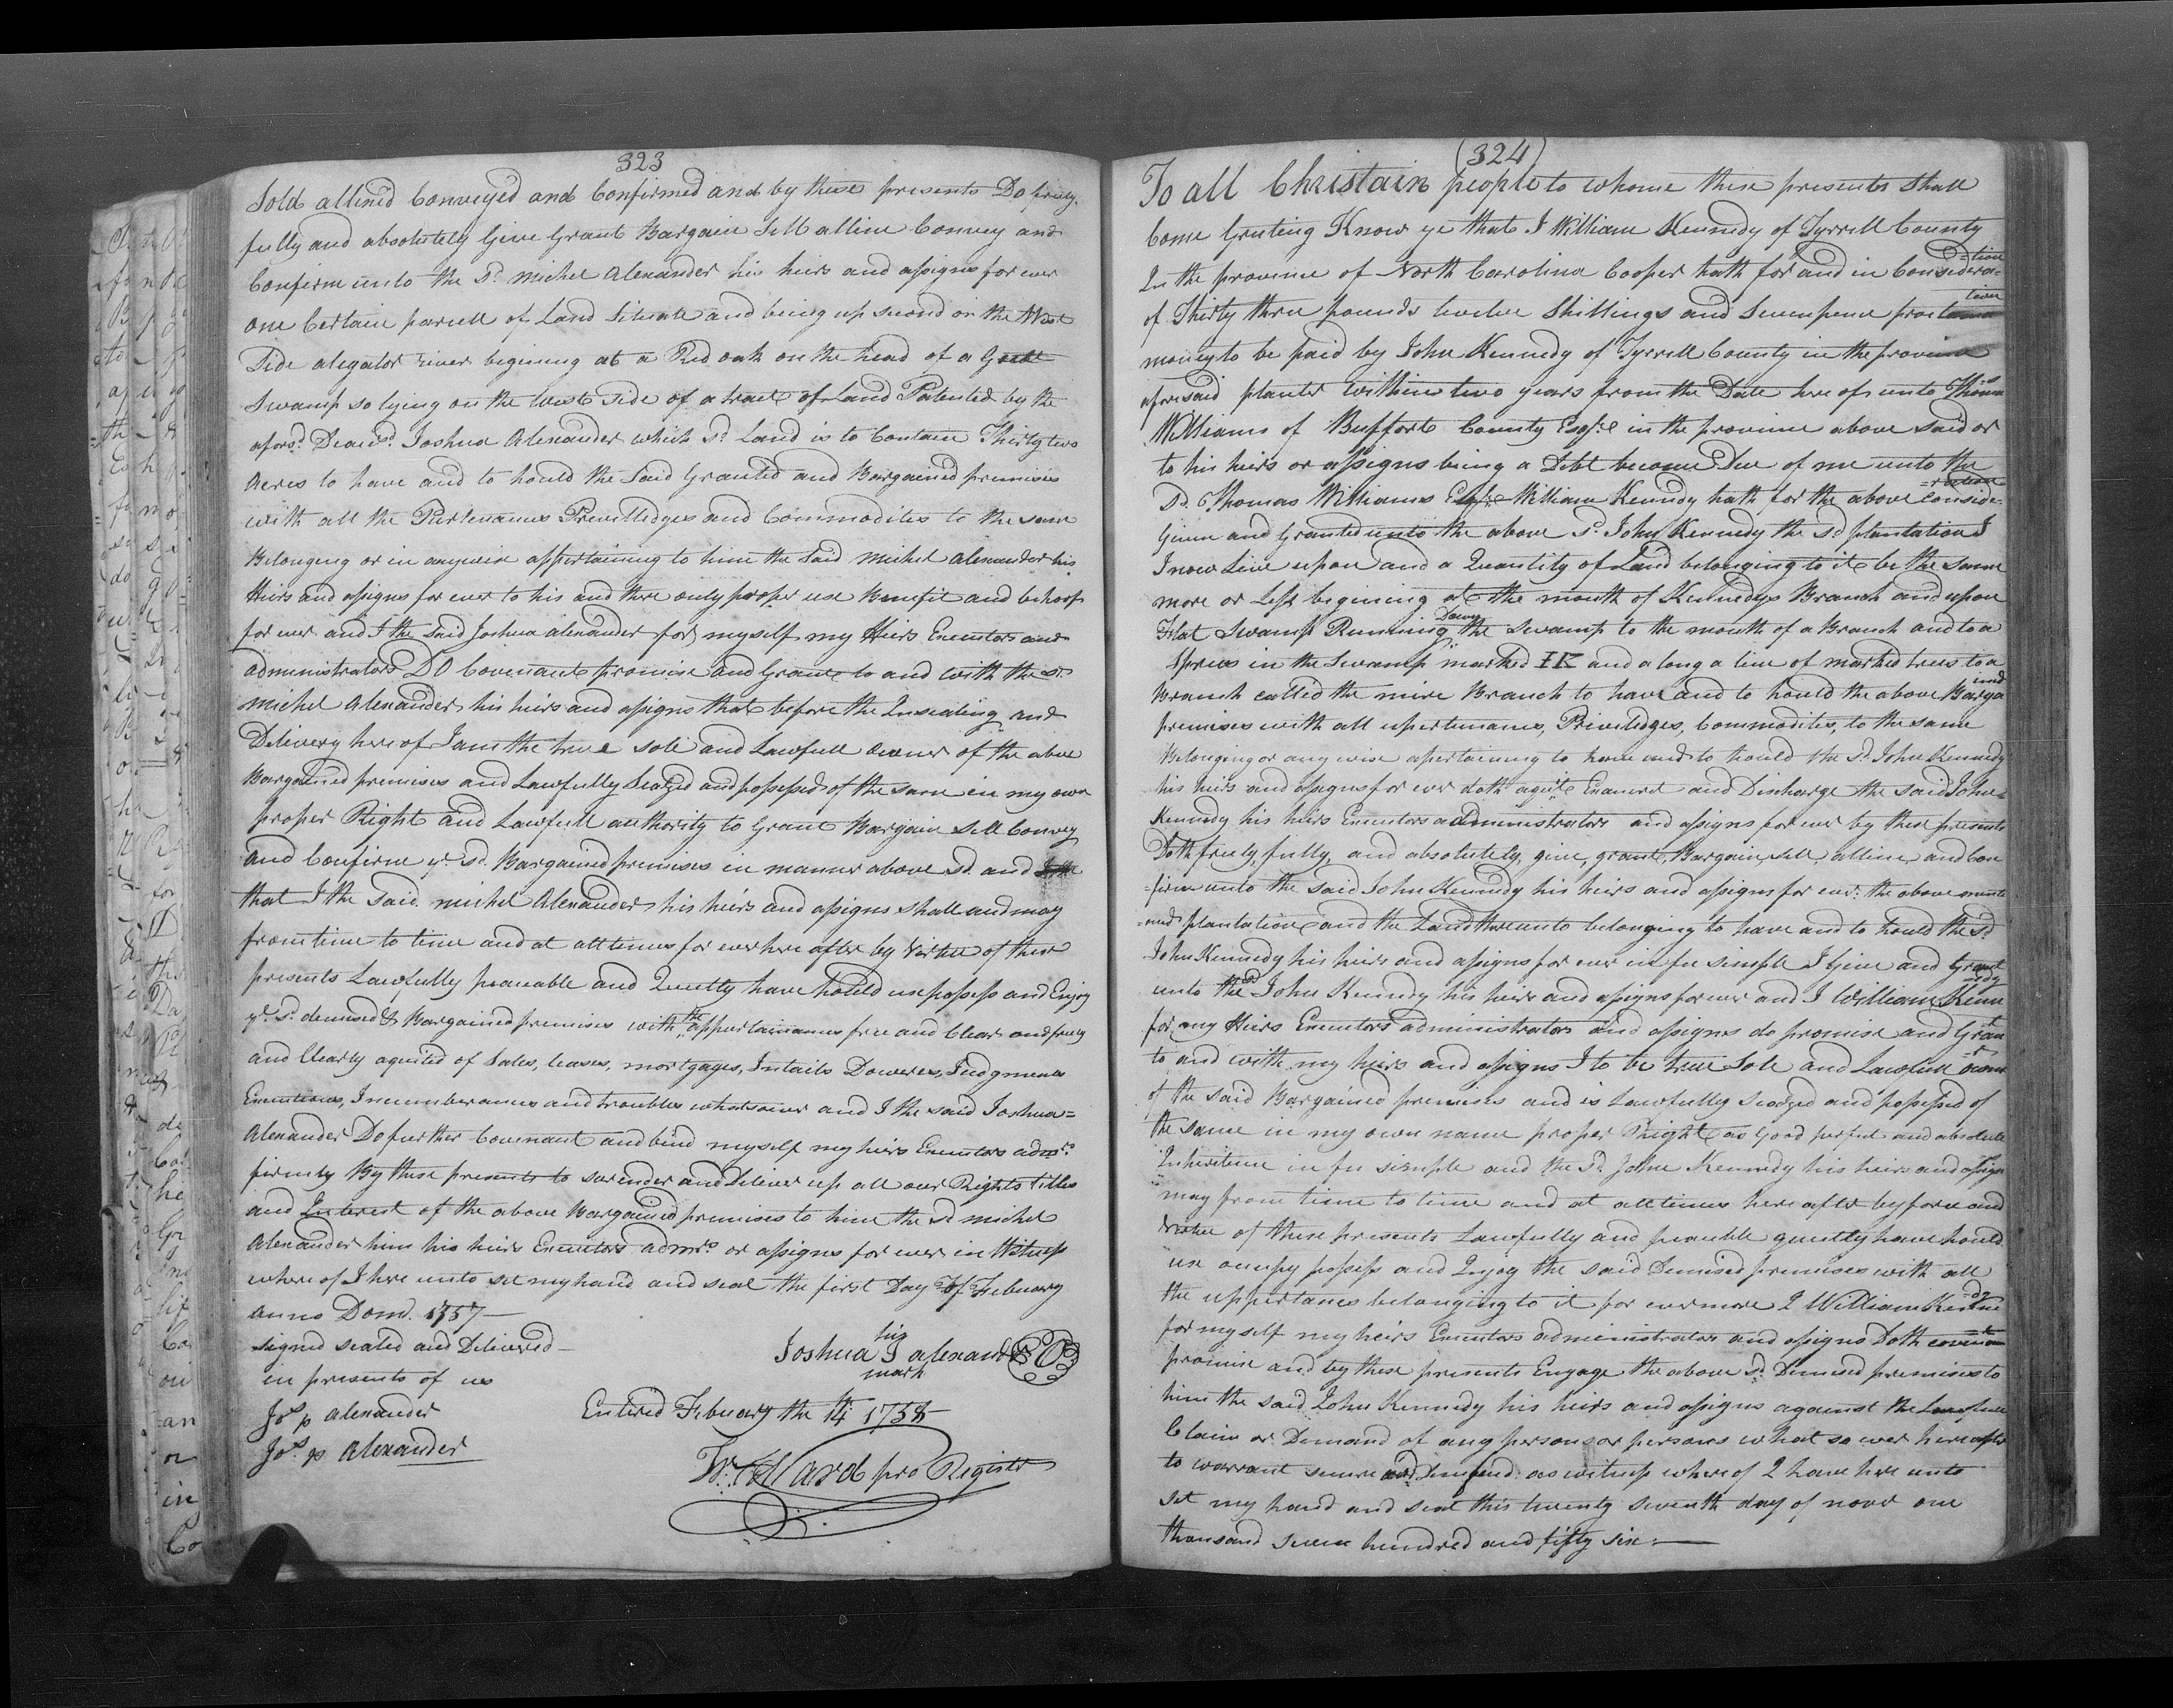 323
Sold aliend Conveyed and Confirmed and by these presents Do freely
fully and absolutely Give Grant Bargain Sell aliene Convey and
Confirm unto the Sd. michel Alexander his heirs and assigns for ever
one Certain parcell of Land Situate and being up second on the West
Side alegator river begining at a Red oak on the head of a Great
Swamp so lying on the West side of a tract of Land Patented by the
aforsd. Joshua Alexander which sd. Land is to Contain Thirty two
Acres to have and to hould the Said Granted and Bargained premises
with all the Purtenances Previlledges and Commodites to the same
Belonging or in anywise appertaining to him the Said michel alexander his
Heirs and assigns for ever to his and there only proper use Benefit and behoof
for ever and I the said Joshua alexander for myself my Heirs Executors and
administrators DO Covenant promise and Grant to and with the sd.
michel Alexander his heirs and assigns that before the Insealing and
Delivery here of I am the true sole and Lawfull owner of the above
Bargained premises and Lawfully Seazed and possessed of the same in my own
proper Right and Lawfull authority to Grant Bargain Sell Convey
and Confirm ye. sd. Bargained premises in manner above sd. and
that I the Said michel Alexander his heirs and assigns shall and may
from time to time and at all times for ever here after by Virtue of these
presents Lawfully peaceable and Quietly have hould use possess and Enjoy
ye. sd. demised & Bargained premises with the appurtainances free and Clear and freely
and Clearly aquited of Sales, leases, mortgages, Intails Doweres, Judgments
Executions, Incumberances and troubles whatsoever and I the said Joshua=
Alexander Do further Covenant and bind myself my heirs Executors admrs.
firmly By these presents to surender and Deliver up all our Rights titles
and Interest of the above Bargained premises to him the sd michel
Alexander him his heirs Executors admrs. or assigns for ever in Witness
where of I here unto set my hand and seal the first Day of Febuary
anno Domd. 1757—
signed sealed and Delivered—
in presents of us
Jos. p alexander
Jos. p Alexander
his
Joshua J alexander
mark
Entered Febuary the 14 1758
Ward pro Registr
(324)
To all Christain people to whome these presents shall
Come Greeting Know ye that I William Kennedy of Tyrrell County
In the province of North Carolina Cooper hath for and in Consideration
of Thirty three pounds twelve Shillings and Sevenpence
money to be paid by John Kennedy of Tyrrell County in the province
afresaid planter within two years from the Date here of unto Thomas
Williams of Buffort County Esqr. in the province above said or
to his heirs or assigns being a Debt become Due of me unto the
Sd. Thomas Williams Esqr. William Kennedy hath for the above Consideration
Given and Granted unto the above sd. John Kennedy the sd plantation I
I now Live upon and a Quantity of Land belonging to it be the Same
more or Less begining at the mouth of Kennedys Branch and upon
Flat Swamp Running Down the Swamp to the mouth of a Branch and to a
Sprus in the Swamp marked IK and along a line of marked trees to a
Branch called the mire Branch to have and to hould the above Bargained
premises with all upertenances, Priviledges, Commodites, to the same
Belonging or any wise apertaining to have and to hould the Sd. John Kennedy
his heirs and assigns for ever doth aquit and Discharge the said John=
Kennedy his heirs Executors administrators and assigns for ever by these presents
Doth freely, fully, and absolutely, give, grant, Bargain, Sell, aliene, and Con
=firm unto the said John Kennedy his heirs and assigns for ever the above
plantation and the Land thereunto belonging to have and to hould the sd.
John Kennedy his heirs and assigns for ever in fee simple I Give and Grant
unto the sd John Kennedy his heirs and assigns for ever and I William Kennedy
for my Heirs Executors administrators and assigns do promise and Grant
to and with my heirs and assigns I to be true Sole and Lawfull owner
of the said Bargained premises and is Lawfully Seazed and possessed of
the same in my own name proper Right as Good perfect and absolute
Inheritence in fee simple and the sd. John Kennedy his heirs and assigns
may from time to time and at all times here after by force and
virtue of these presents Lawfully and peaceable quietly have hould
use occupy possess and Injoy the said Demised premises with all
the uppertances belonging to it for evermore I William Kennedy
for my self my heirs Executors administrators and assigns Doth covenant
promise and by these presents Engage the above sd. Demised premises to
him the said John Kennedy his heirs and assigns against the Lawfull
Claim or Demand of any person or persons what so ever hereafter
to warrant secure and as witness where of I have here unto
set my hand and seal this twenty seventh day of novr one
thousand seven hundred and fifty six:—